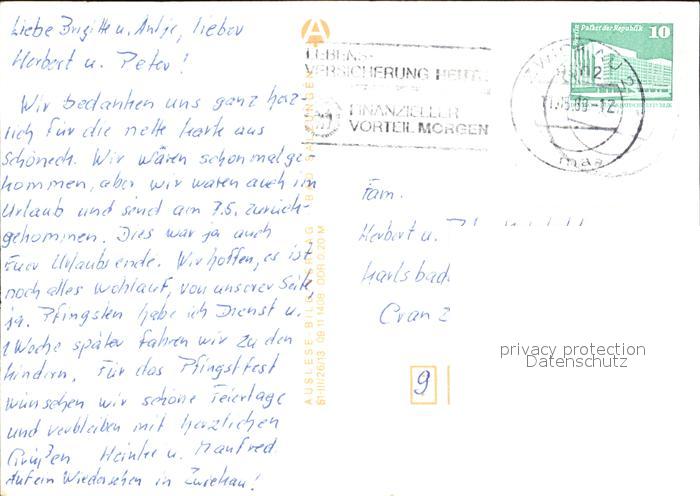 Liebe Brigitte u. Antje, lieber
Herbert u. Peter!
Wir bedanken uns ganz herz-
lich für die nette Karte aus
Schöneck. Wir wären schon mal ge-
kommen, aber wir waren auch im
Urlaub und sind am 7.5. zurück-
gekommen. Dies war ja auch
Euer Urlaubsende. Wir hoffen, es ist
noch alles wohlauf, von unserer Seite
ja. Pfingsten habe ich Dienst u.
1 Woche später fahren wir zu den
Kindern. Für das Pfingstfest
wünschen wir schöne Feiertage
und verbleiben mit herzlichen
Grüßen Heinke u. Manfred
Auf ein Wiedersehen in Zwickau!
AUSLESE-BILD-VERLAG
51-III/26/13 09 11 1408 DDR 0,20 M
LEBENS-
VERSICHERUNG HEUTE
FINANZIELLER
VORTEIL MORGEN
Palast der Republik 10
Fam.
Herbert u.
Karlsbad
Cranz
9
privacy protection
Datenschutz